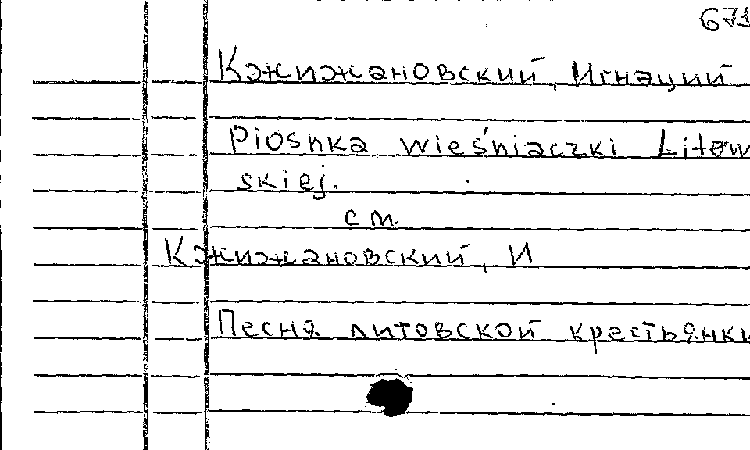 671
Кжижановский, Игнаций
Piosnka wieśniaczki Litew
skiej.
см.
Кжижановский, И
Песня литовской крестьянки